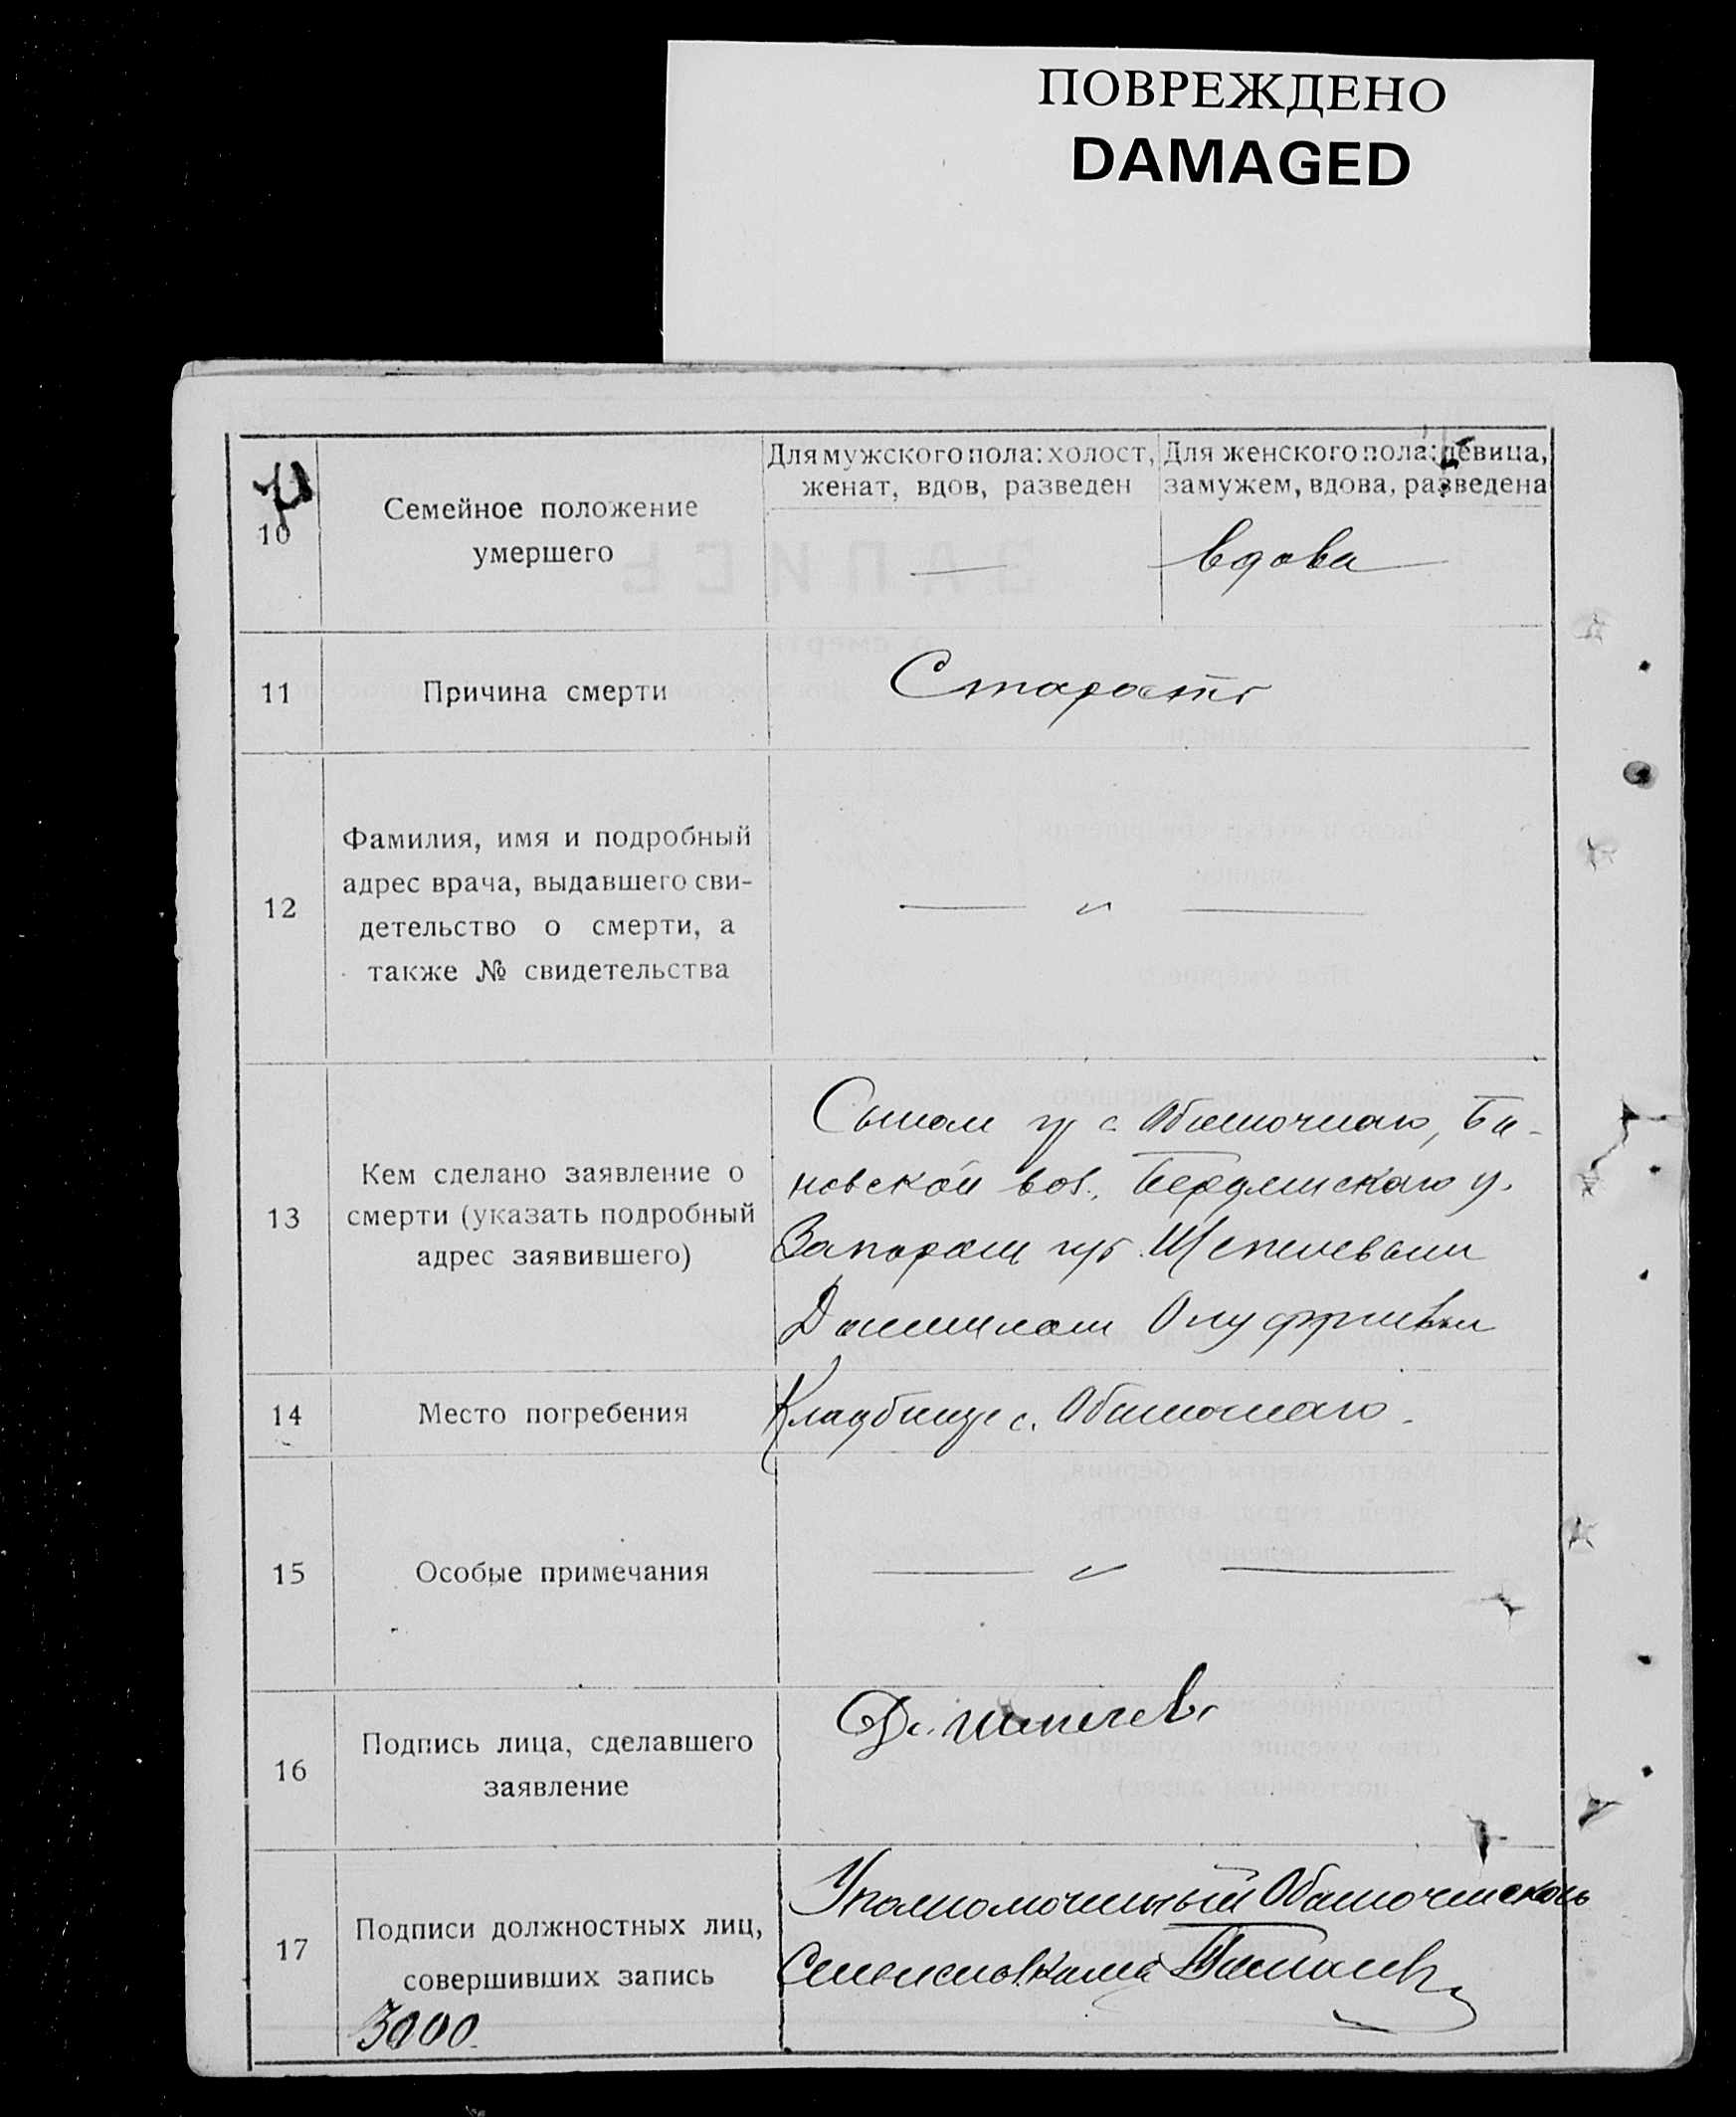 ПОВРЕЖДЕНО
DAMAGED
10
Семейное положение
умершего
Для мужского пола: холост,
женат, вдов, разведен
Для женского пола: девица,
замужем, вдова, разведена
вдова
11
Причина смерти
Старость
12
Фамилия, имя и подробный
адрес врача, выдавшего сви-
детельство о смерти, а
также № свидетельства
— " —
13
Кем сделано заявление о
смерти (указать подробный
адрес заявившего)
Сыном гр с. Обиточного,
новской вол., Бердянского у.
Запорож губ. Шепилевым
Даниилом
14
Место погребения
Кладбище с. Обиточного.
15
Особые примечания
— " —
16
Подпись лица, сделавшего
заявление
17
Подписи должностных лиц,
совершивших запись
Уполномоченный Обиточенского
3000